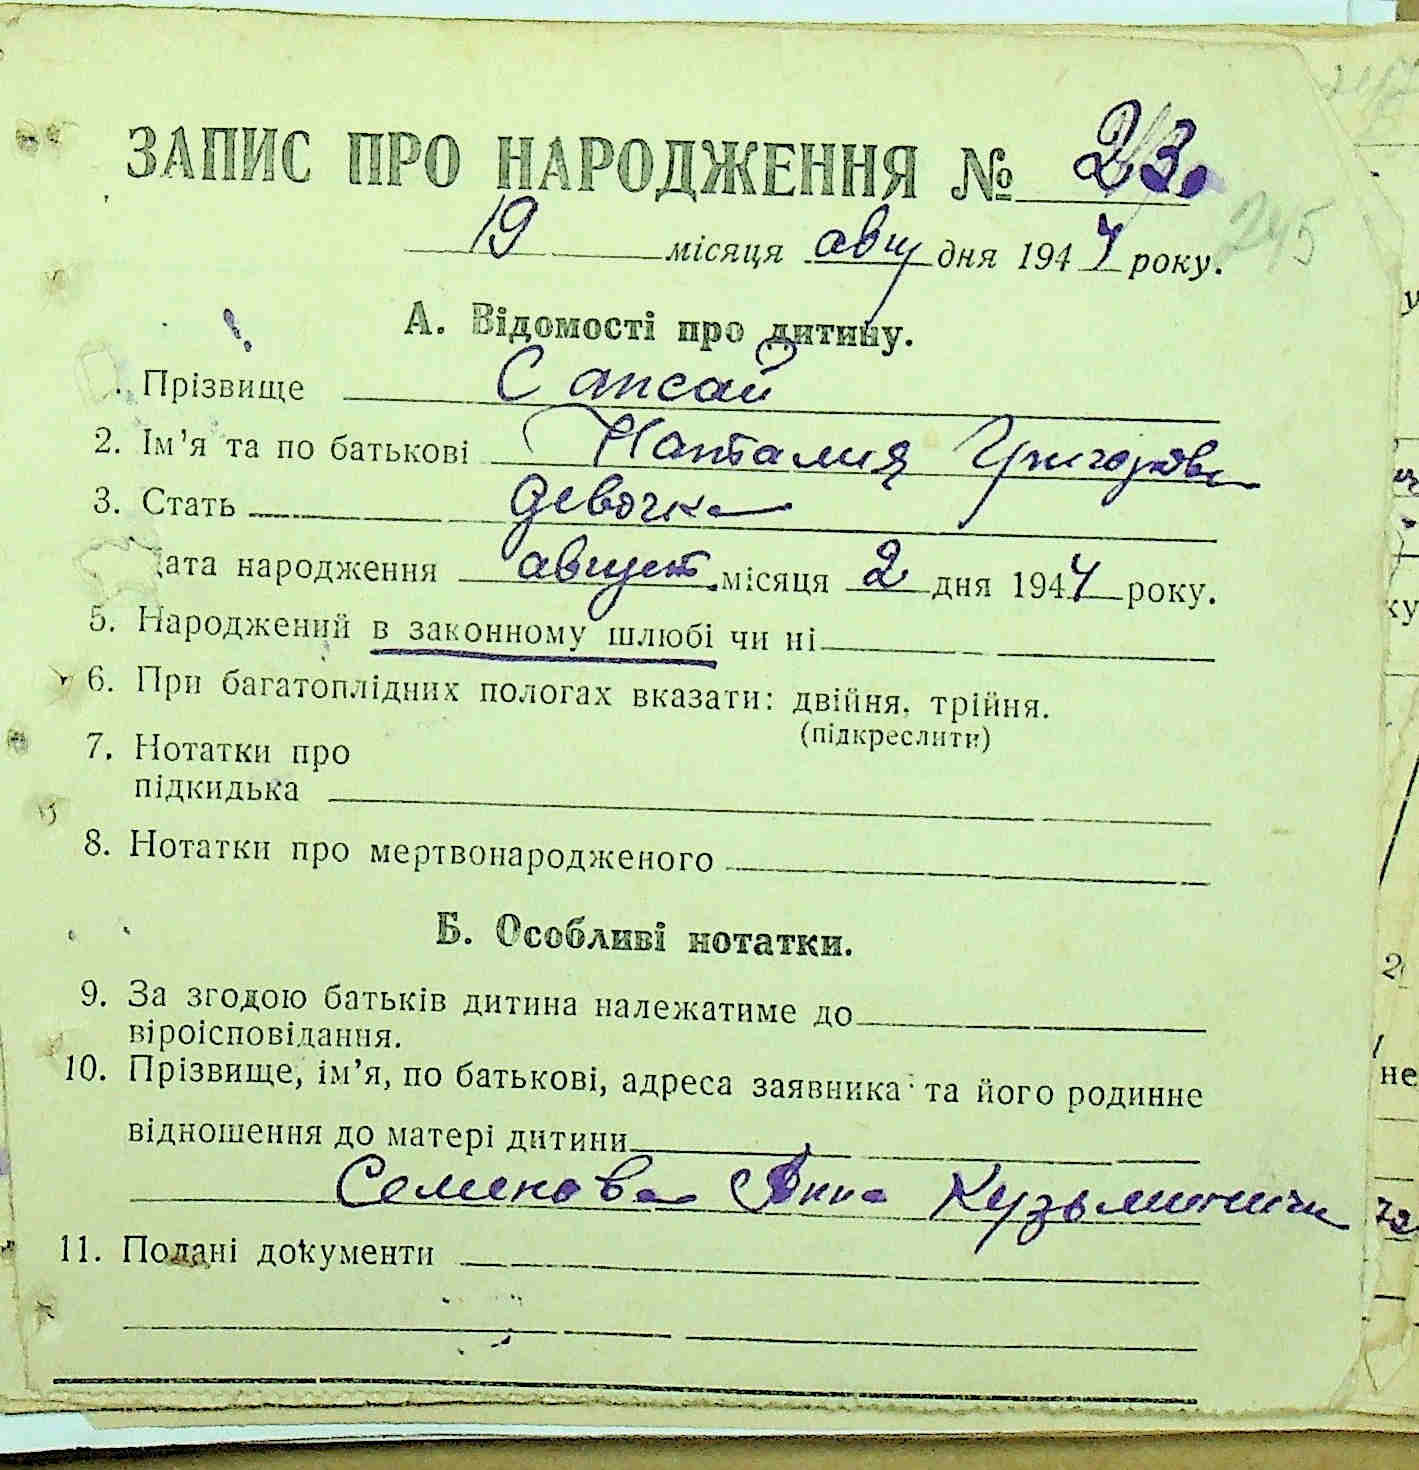 ЗАПИС ПРО НАРОДЖЕННЯ № 23.
245
19 місяця авгу дня 1944 року.
А. Відомості про дитину.
. Прізвище Сапсай
2. Ім'я та по батькові Наталия Григоровн
3. Стать девочка
ата народження август місяця 2 дня 1944 року.
5. Народжений в законному шлюбі чи ні
6. При багатоплідних пологах вказати: двійня, трійня.
(підкреслити)
7. Нотатки про
підкидька
8. Нотатки про мертвонародженого
Б. Особливі нотатки.
9. За згодою батьків дитина належатиме до
віроісповідання.
10. Прізвище, ім'я, по батькові, адреса заявника та його родинне
відношення до матері дитини
Семенова Анна Кузьминична
11. Подані документи